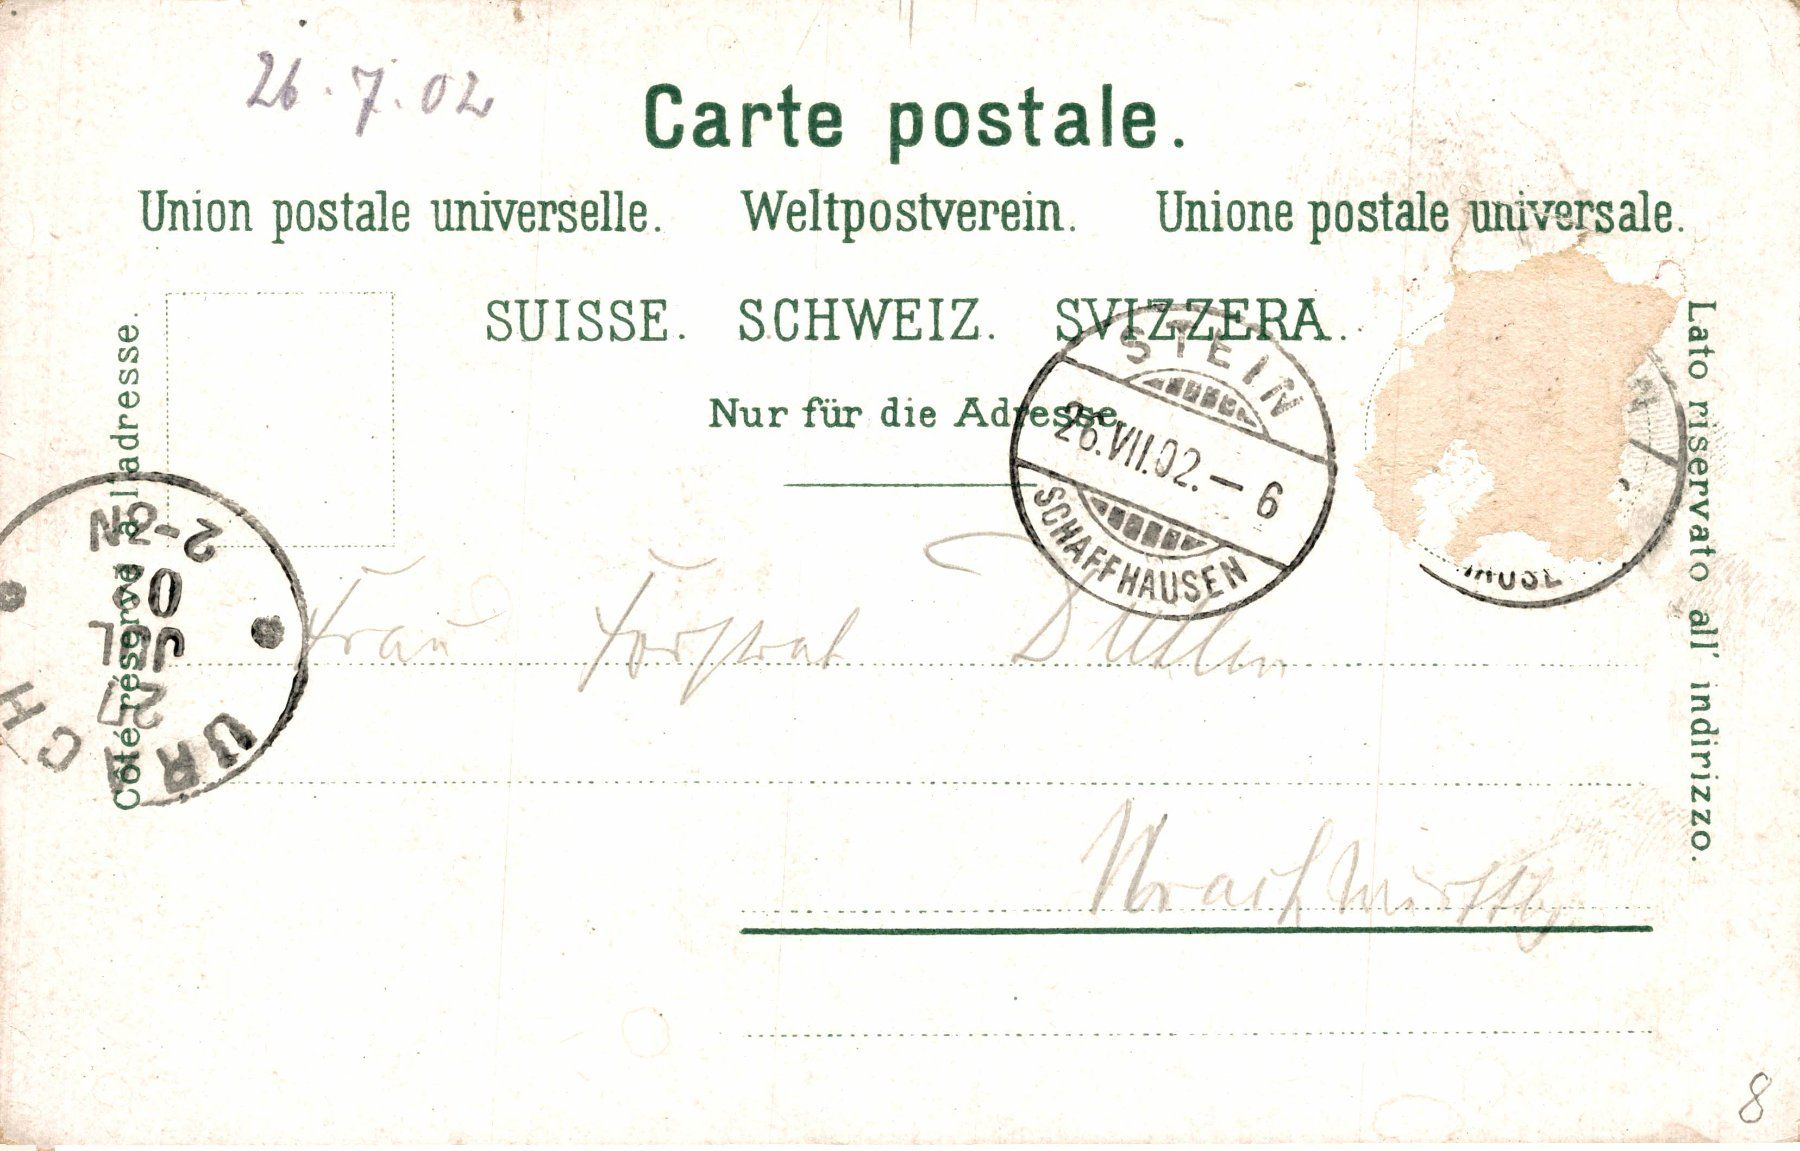 26.7.02
Carte postale.
Union postale universelle. Weltpostverein. Unione postale universale.
SUISSE. SCHWEIZ. SVIZZERA.
Nur für die Adresse.
Côté réservé à l'adresse.
Lato riservato all' indirizzo.
STEIN
26.VII.02.–6
SCHAFFHAUSEN
URACH
27
JUL
02
2-3N
Frau Forstrat
Urach Württbg
8